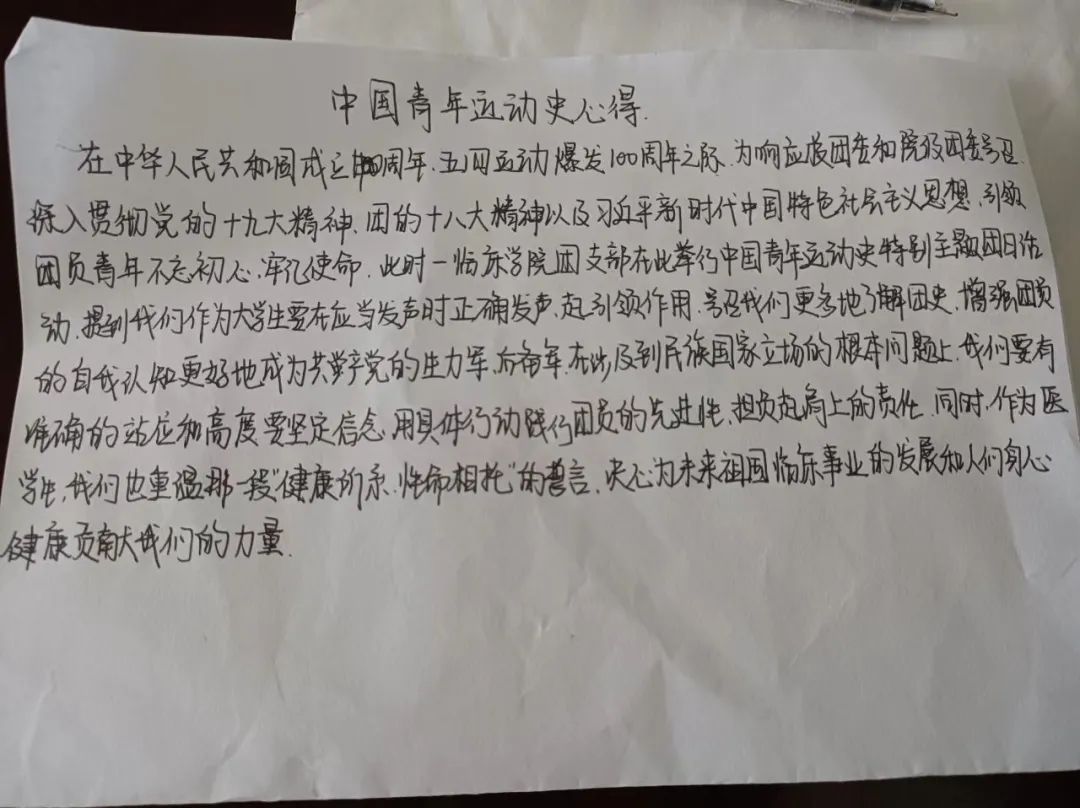 中国青年运动史心得.
在中华人民共和国成立周年、五四运动爆发100周年之际、为响应校团委和院级团委号召、
深入贯彻党的十九大精神、团的十八大精神以及习近平新时代中国特色社会主义思想、引领
团员青年不忘初心、牢记使命、此时一临床学院团支部在此举行中国青年运动史特别主题团日活
动、提到我们作为大学生要在应当发声时正确发声、起引领作用、号召我们更多地了解团史、增强团员
的自我认知更好地成为共产党的生力军、后备军、在涉及到民族国家立场的根本问题上、我们要有
准确的站位和高度要坚定信念、用具体行动践行团员的先进性、担负起肩上的责任、同时、作为医
学生、我们也重温那一段"健康所系、性命相托"的誓言、决心为未来祖国临床事业的发展和人们身心
健康贡献我们的力量.